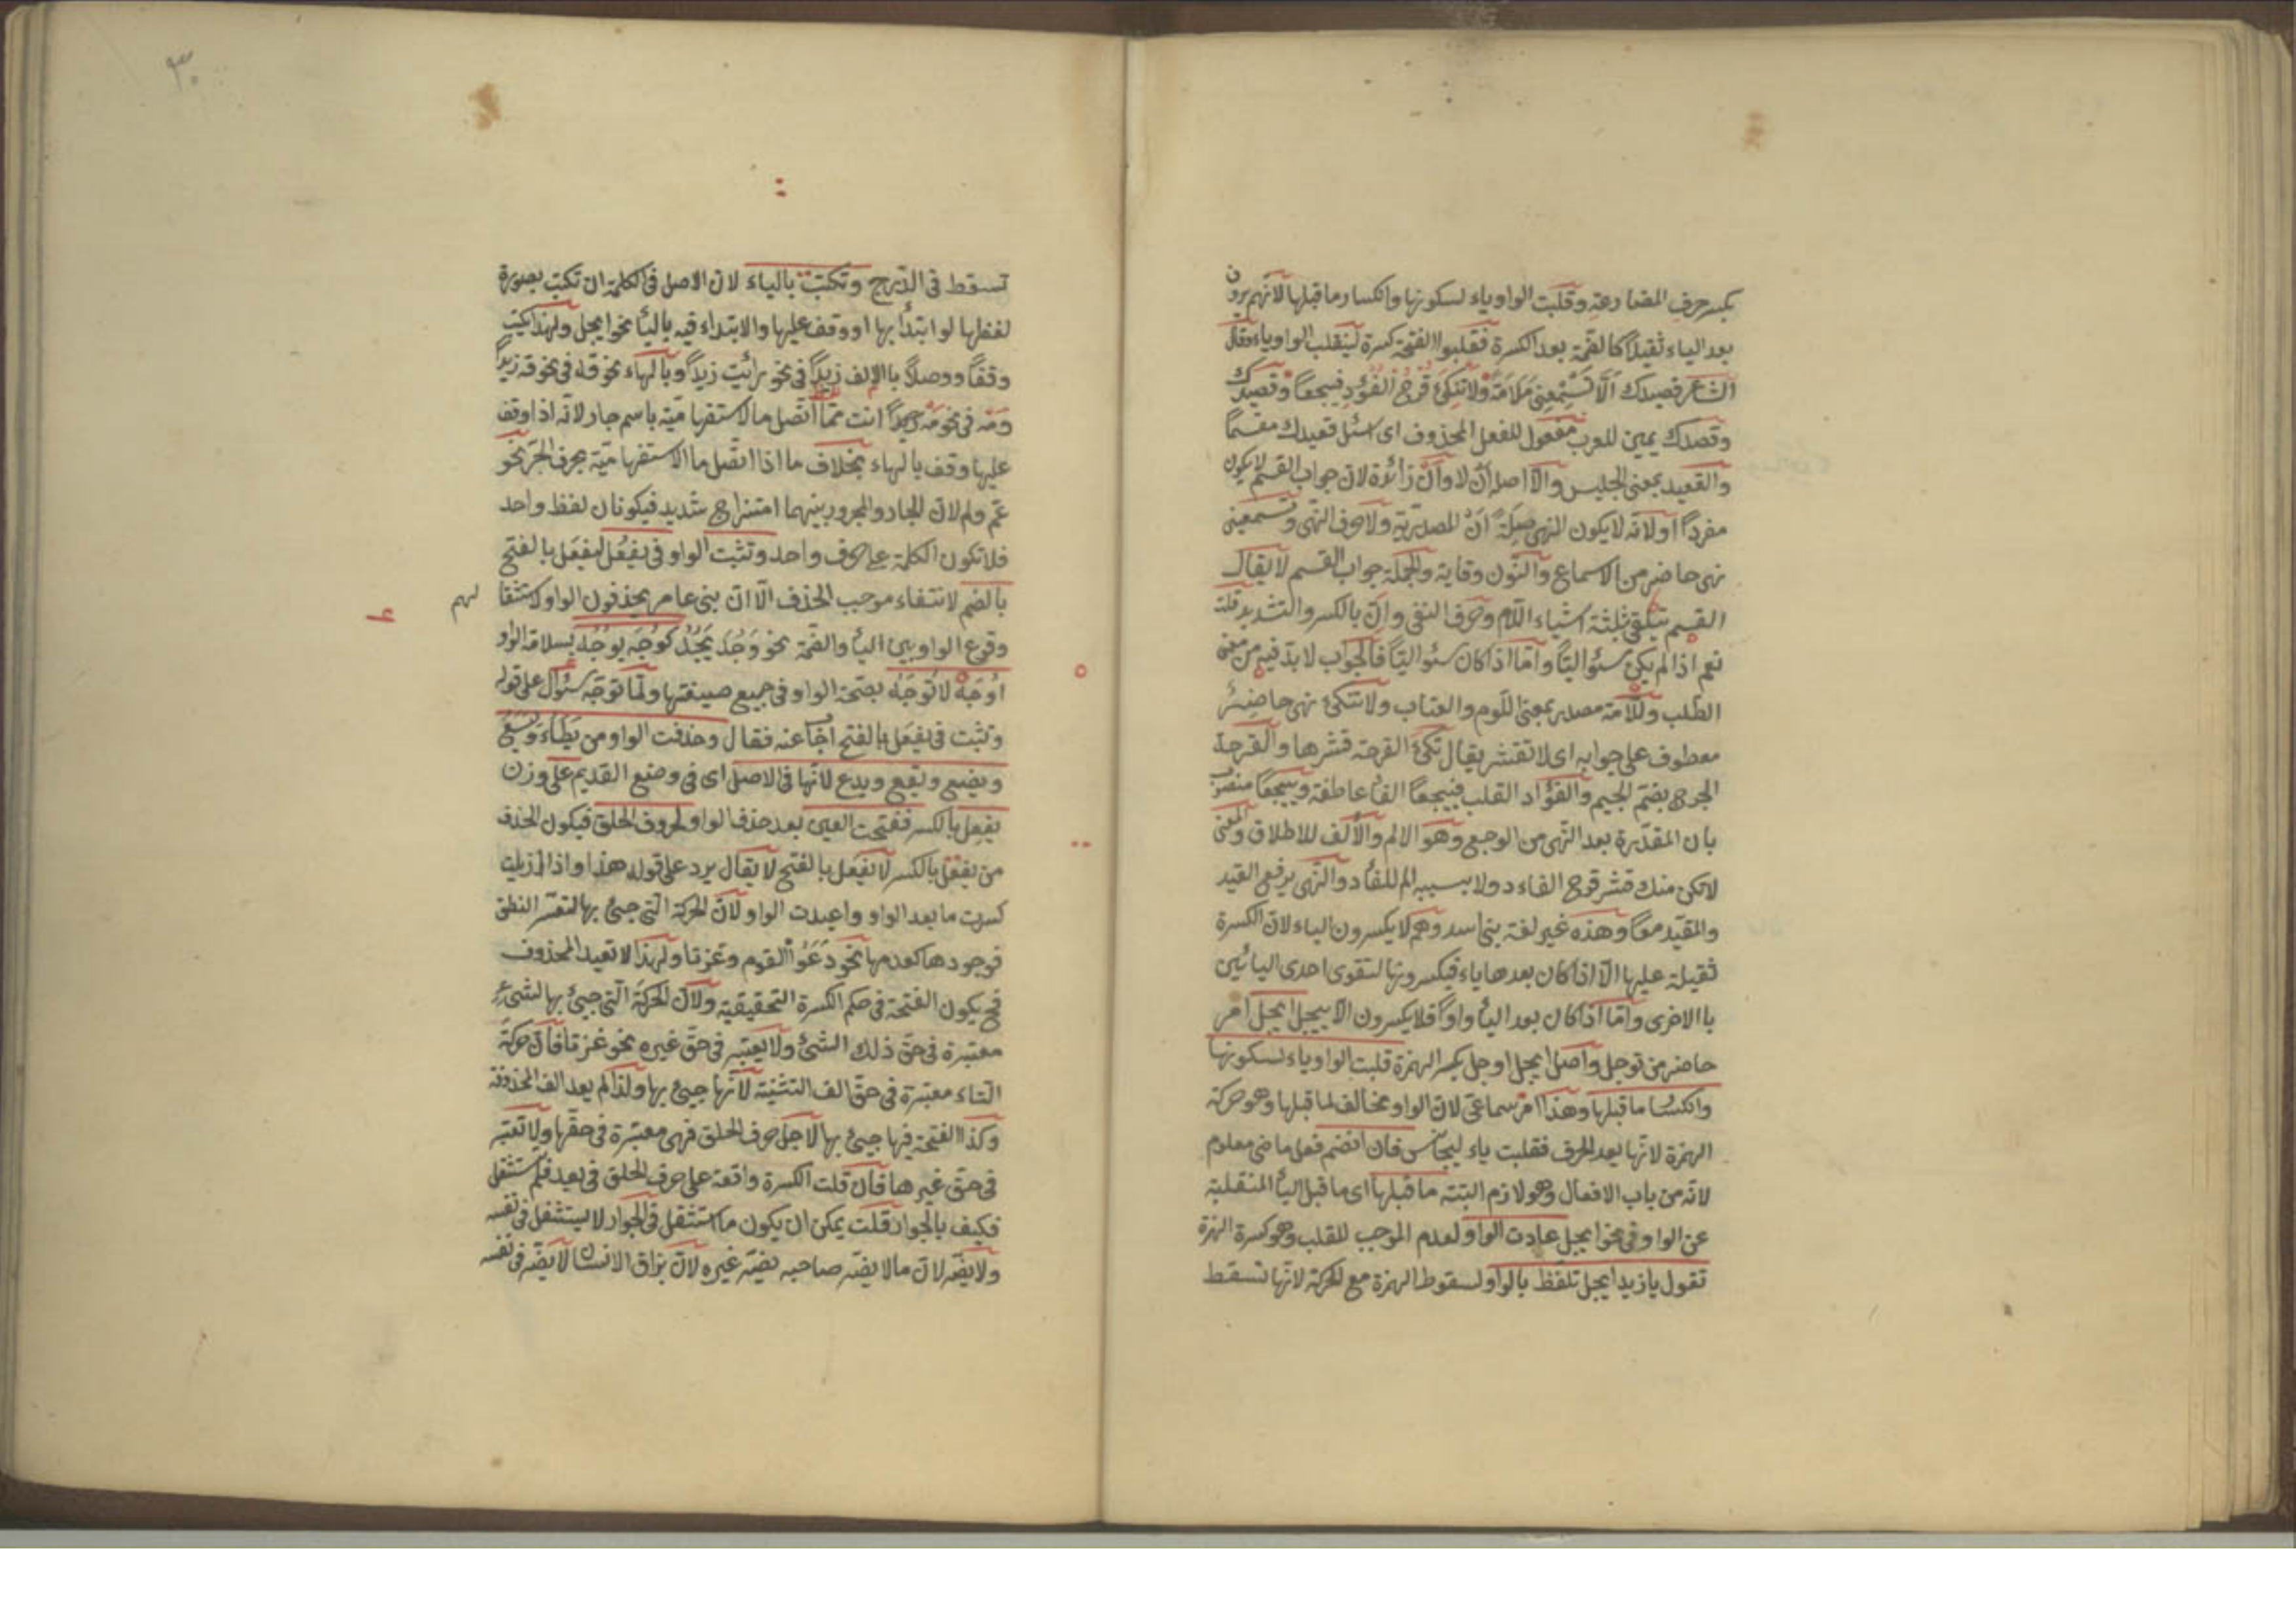 بكسر حرف المضارعة وقلبت الواو ياء لسكونها وانكسار ما قبلها لانهم يرون
بعد الياء ثقيلاً كالضمة بعد الكسرة فقلبوا الفتحة كسرة لينقلب الواو ياء وقال
الشاعر قصيدك الا تسمعني ملامة ولا تنكئ قرح الفؤد فييجعا وقصيدك
وقصدك يمين للعرب مفعول للفعل المحذوف اى اسئل قعيدك مقسماً
والقعيد بمعنى الجليس والا اصله ان لا وان زائدة لان جواب القسم لا يكون
مفرداً او لانه لا يكون النهى صلة ان المصدرية ولا حرف النهى وتسمعينى
نهى حاضر من الاسماع والنون وقاية والجملة جواب القسم لا يقال
القسم يتلقى بثلثة اشياء اللام وحرف النفى وانّ بالكسر والتشديد قلت
نعم اذا لم يكن سئوالياً وامّا اذا كان سئوالياً فالجواب لا بد فيه من معنى
الطلب وللامة مصدر بمعنى اللوم والعتاب ولا تنكئ نهى حاضر
معطوف على جوابه اى لا تقشر يقال نكئ القرحة قشرها والقرحة
الجرح بضم الجيم والفؤاد القلب فييجعا الفا عاطفة وييجعا منصوب
بان المقدرة بعد النهى من الوجع وهو الالم والالف للاطلاق والمعنى
لا تكن منك قشر قرح الفاءد ولا بسببه الم للفأد والنهى يرفع القيد
والمقيد معاً وهذه غير لغة بنى اسد وهم لا يكسرون الياء لان الكسرة
ثقيلة عليها الّا اذا كان بعدها ياء فيكسرونها لتقوى احدى اليائين
بالاخرى وامّا اذا كان بعد اليأ واواً فلا يكسرون الا ييجل ايجل امر
حاضر من توجل واصل ايجل اوجل بكسر الهمزة قلبت الواو ياء لسكونها
وانكسا ما قبلها وهذا امر سماعى لان الواو مخالف لما قبلها وهو حركة
الهمزة لانها بعد الحرف فقلبت ياء ليجانس فان انضم فعل ماض معلوم
لانه من باب الافعال وهو لازم البتة ما قبلها اى ما قبل اليأ المنقلبة
عن الواو فى نحو ايجل عادت الواو لعدم الموجب للقلب وهو كسرة الهمزة
تقول يا زيد ايجل تلفظ بالواو لسقوط الهمزة مع الحركة لانها تسقط
٣٠
تسقط فى الدّرج وتكتب بالياء لان الاصل فى الكلمة ان تكتب بصورة
لفظها لو ابتدأ بها او وقف عليها والابتداء فيه باليأ نحو ايجل ولهذا كتب
وقفاً ووصلاً بالالف زيداً فى نحو رائيت زيداً وبالهاء نحو قه فى نحو قه زيداً
ومه فى نحو مه انت ممّا اتصل ما الاستفهامية باسم جار لانه اذا وقف
عليها وقف بالهاء بخلاف ما اذا اتصل ما الاستفهامية بحرف الجر نحو
عم ولم لان للجار والمجرور بينهما امتزاج شديد فيكونان لفظ واحد
فلا تكون الكلمة على حرف واحد وتثبت الواو فى يفعل ليفعل بالفتح
بالضم لانتفاء موجب الحذف الّا انّ بنى عامر يحذفون الواو لاستثقالهم
وقوع الواو بين اليأ والضمة نحو وجد يجد كوجه يوجه بسلامة الواو
اوجه لا توجه بصحة الواو فى جميع صيغتها ولمّا توجه سئوال على قوله
وتثبت فى يفعل بالفتح اجا عنه فقال وحذفت الواو من يطاء ويسع
ويضع ويقع ويدع لانها فى الاصل اى فى وضع القديم على وزن
يفعل بالكسر ففتحت العين بعد حذف الواو لحروف الحلق فيكون الحذف
من يفعل بالكسر لا يفعل بالفتح لا يقال يرد على قوله هذا واذا ازيلت
كسرت ما بعد الواو واعيدت الواو لان الحركة التى جيئ بها لتعسر النطق
فوجودها كعدمها نحو دعوا القوم وغزتا ولهذا لا تعيد المحذوف
فح يكون الفتحة فى حكم الكسرة التحقيقية ولان الحركة التى جيئ بها لشئ
معتبرة فى حق ذلك الشئ ولا يعتبر فى حق غيره نحو غزتا فانّ حركة
التاء معتبرة فى حق الف التثنية لانها جيئ بها ولذا لم يعد الف المحذوفة
وكذا الفتحة فيها جيئ بها لاجل حرف الحلق فهى معتبرة فى حقها ولا تعتبر
فى حق غيرها فان قلت الكسرة واقعة على حرف الحلق فى يعد فلم يستثقل
فكيف بالجوار قلت يمكن ان يكون ما استثقل فى الجوار لا يستثقل فى نفسه
ولا يضر لان ما لا يضر صاحبه يضر غيره لان بزاق الانسان لا يضر فى نفسه